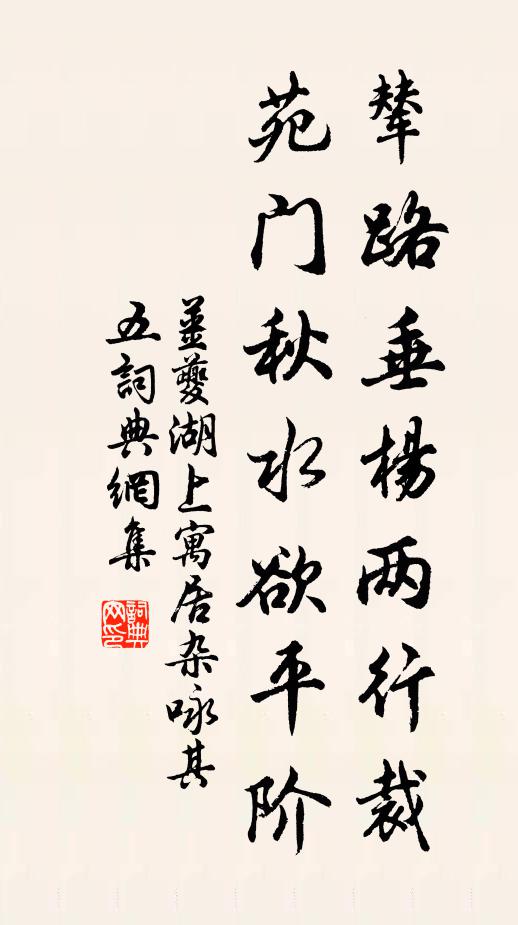 辇路垂杨两行裁
苑门秋水欲平阶
姜夔湖上寓居杂咏其
五詞典網集
詞典网印